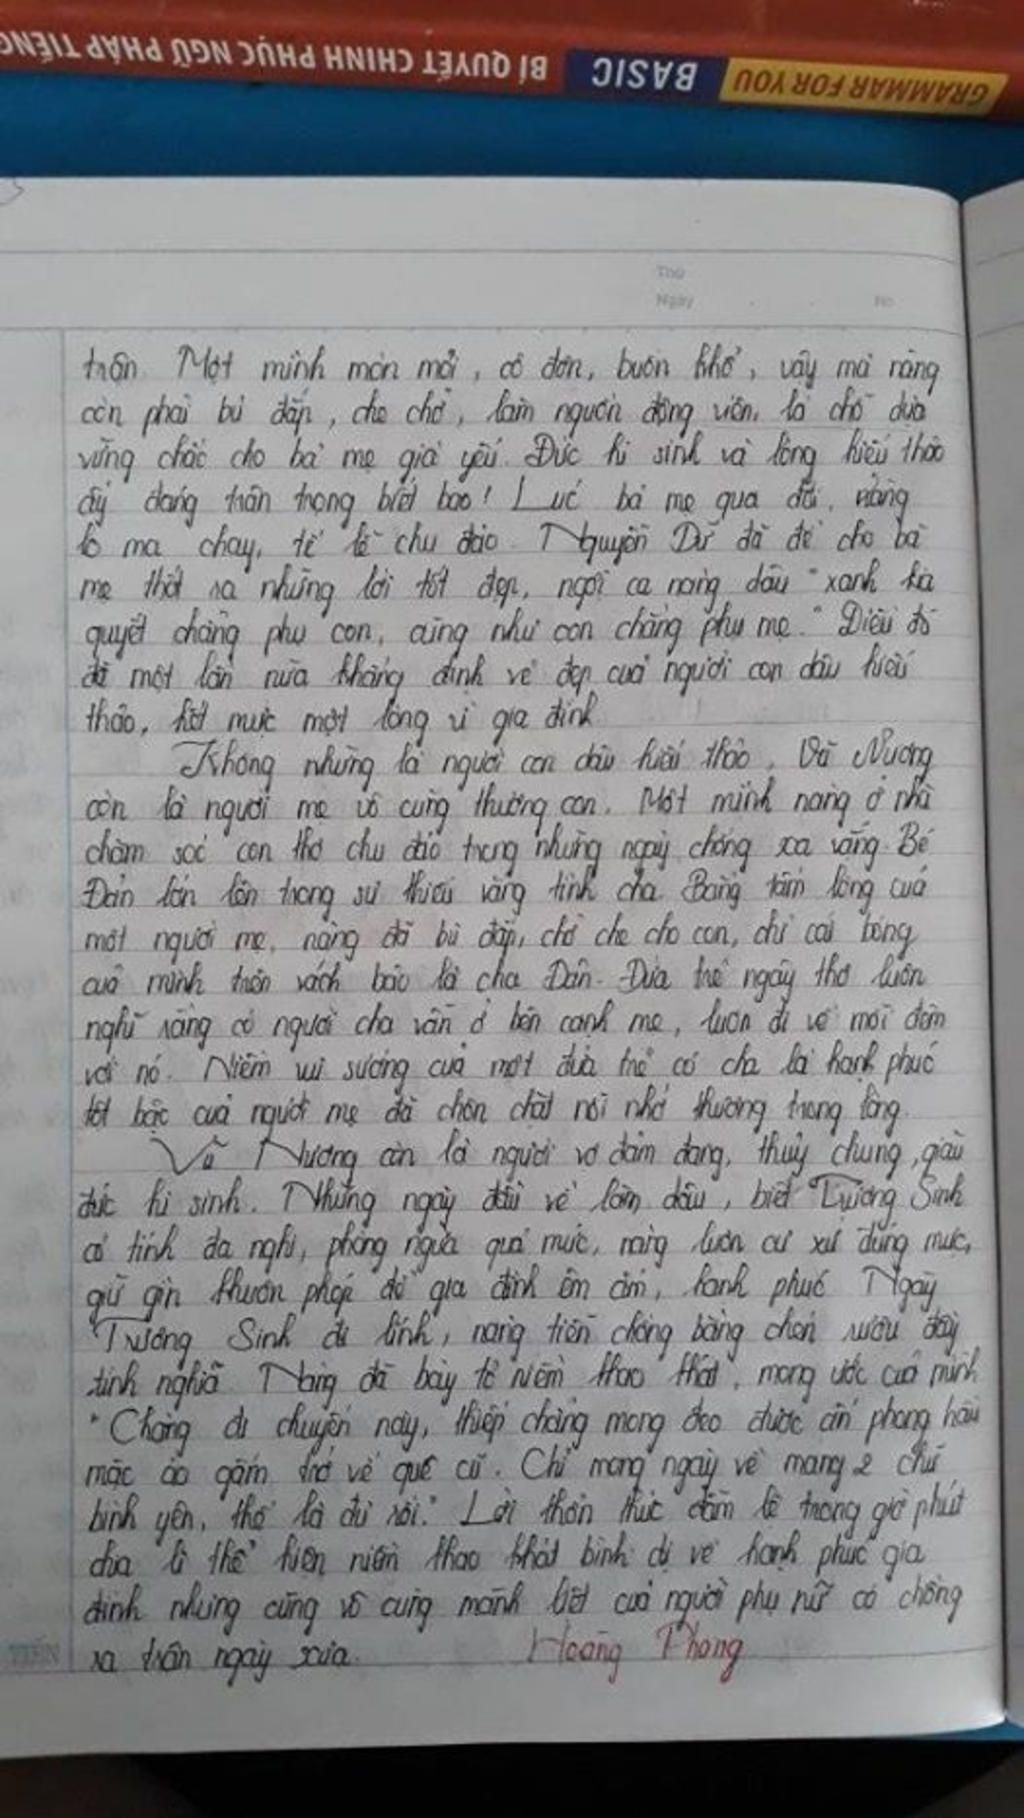 GRAMMAR FOR YOU BASIC BÍ QUYẾT CHINH PHỤC NGỮ PHÁP TIẾNG
Thứ
Ngày No
trận. Một mình mòn mỏi, cô đơn, buồn khổ, vậy mà nàng
còn phải bù đắp, che chở, làm nguồn động viên, là chỗ dựa
vững chắc cho bà mẹ già yếu. Đức hi sinh và lòng hiếu thảo
ấy đáng trân trọng biết bao! Lúc bà mẹ qua đời, nàng
lo ma chay, tế lễ chu đáo. Nguyễn Dữ đã để cho bà
mẹ thốt ra những lời tốt đẹp, ngợi ca nàng dâu "xanh kia
quyết chẳng phụ con, cũng như con chẳng phụ mẹ." Điều đó
đã một lần nữa khẳng định vẻ đẹp của người con dâu hiếu
thảo, hết mực một lòng vì gia đình
Không những là người con dâu hiếu thảo, Vũ Nương
còn là người mẹ vô cùng thương con. Một mình nàng ở nhà
chăm sóc con thơ chu đáo trong những ngày chồng xa vắng. Bé
Đản lớn lên trong sự thiếu vắng tình cha. Bằng tấm lòng của
một người mẹ, nàng đã bù đắp, chở che cho con, chỉ cái bóng
của mình trên vách bảo là cha Đản. Đứa trẻ ngây thơ luôn
nghĩ rằng có người cha vẫn ở bên cạnh mẹ, luôn đi về mỗi đêm
với nó. Niềm vui sướng của một đứa trẻ có cha là hạnh phúc
tột bậc của người mẹ đã chôn chặt nỗi nhớ thương trong lòng.
Vũ Nương còn là người vợ đảm đang, thủy chung, giàu
đức hi sinh. Những ngày đầu về làm dâu, biết Trương Sinh
có tính đa nghi, phòng ngừa quá mức, nàng luôn cư xử đúng mực,
giữ gìn khuôn phép để gia đình êm ấm, hạnh phúc Ngày
Trương Sinh đi lính, nàng tiễn chồng bằng chén rượu đầy
tình nghĩa. Nàng đã bày tỏ niềm khao khát, mong ước của mình
"Chàng đi chuyến này, thiếp chẳng mong đeo được ấn phong hầu
mặc áo gấm trở về quê cũ. Chỉ mong ngày về mang 2 chữ
bình yên, thế là đủ rồi." Lời thổn thức đẫm lệ trong giờ phút
chia li thể hiện niềm khao khát bình dị về hạnh phúc gia
đình nhưng cũng vô cùng mãnh liệt của người phụ nữ có chồng
ra trận ngày xưa. Hoàng Phong